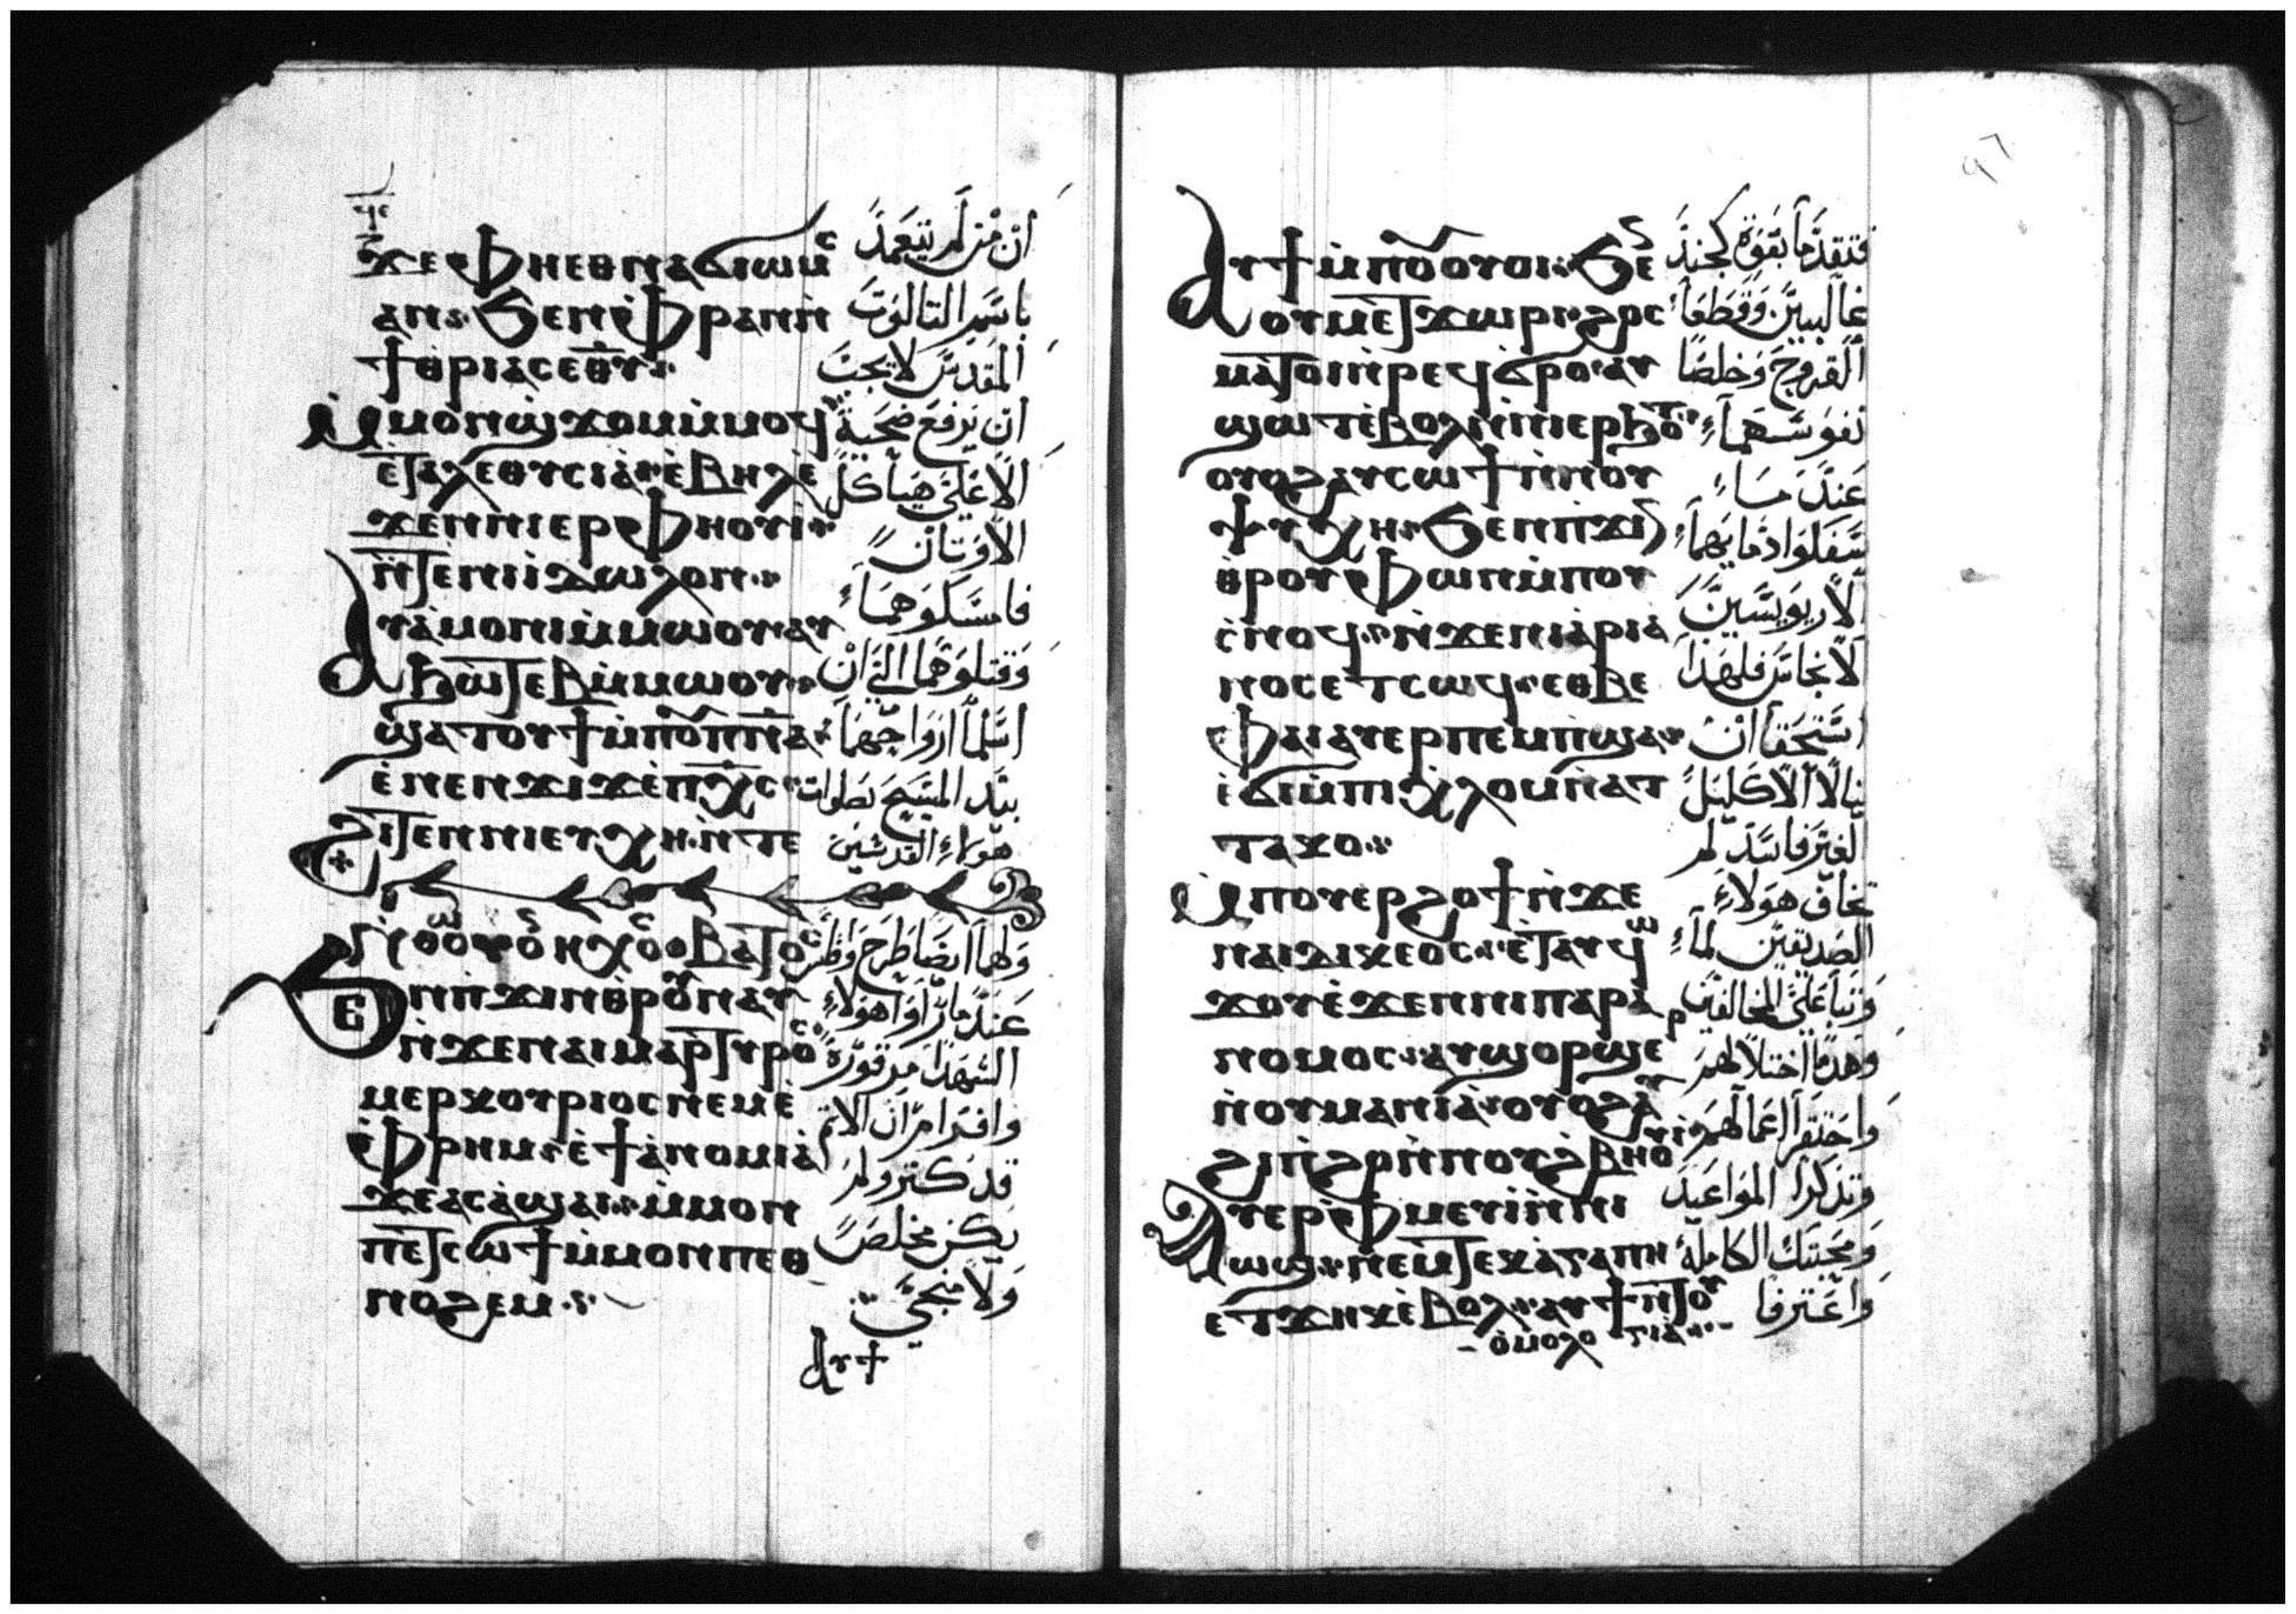 ϫⲉⲫⲏⲉⲑⲛⲁϭⲓⲱⲙⲥ
ⲁⲛ ϧⲉⲛⲫⲣⲁⲛⲛ̀
ϯⲑⲣⲓⲁⲥⲉⲑⲩ
ⲙⲟⲛϣϫⲟⲙⲙ̀ⲙⲟϥ
ⲉⲧⲁⲗⲉⲑⲩⲥⲓⲁ ⲉ̀ⲃⲏⲗⲉ̀
ϫⲉⲛⲛⲓⲉⲣⲫⲏⲟⲩⲓ
ⲛ̀ⲧⲉⲛⲓⲓⲇⲱⲗⲟⲛ
ⲁⲩⲁ̀ⲙⲟⲛⲓⲙ̀ⲙⲱⲟⲩ ⲁⲩ
ϧⲱⲧⲉⲃⲙ̀ⲙⲱⲟⲩ
ϣⲁⲧⲟⲩϯⲙ̀ⲡⲟⲩⲡ̅ⲛ̅ⲁ̅
ⲉ̀ⲛⲉⲛϫⲓϫⲉ̀ⲡⲭ̅ⲥ̅
ϩⲓⲧⲉⲛⲛⲓⲉⲩⲭⲏ ⲛ̀ⲧⲉ
ⲉⲛⲡϫⲓⲛⲑⲣⲟⲩⲛⲁⲩ
ⲛ̀ϫⲉⲛⲁⲓⲙⲁⲣⲧⲩⲣⲟⲥ
ⲙⲉⲣⲕⲟⲩⲣⲓⲟⲥ ⲛⲉⲙⲉ̀
ⲫⲣⲏⲙ ϫⲉ̀ϯⲁ̀ⲛⲟⲙⲓⲁ̀
ϫⲉⲁⲥⲁ̀ϣⲁⲓ ⲙ̀ⲙⲟⲛ
ⲡⲉⲧⲥⲱϯ ⲙ̀ⲙⲟⲛⲡⲉⲑ
ⲛⲟϩⲉⲙ
ⲁⲩϯ
ان من لم يتعمد
باسم التالوت
المقدس لا يجب
ان يرفع ضحية
الا على هياكل
الاوتان
فامسكوهما
وقتلوهما الى ان
اسلما ارواحهما
بيد المسيح بصلوات
هولاء القديسين
عندما راوا هولاء
الشهدا مرقوره
وافرام ان الاتم
قد كتر ولم
يكن مخلص
ولا منجي
ⲁⲩϯⲙ̀ⲡⲟⲩⲟⲩⲟⲓ ϧⲉ
ⲟⲩⲙⲉⲧϫⲱⲣⲓ ϩⲱⲥ
ⲙⲁⲧⲟⲓⲛ̀ⲣⲉϥϭⲣⲟ ⲁⲩ
ϣⲱⲧⲉ̀ⲃⲟⲗⲛ̀ⲛⲓⲉⲣϧⲟⲧ
ⲟⲩⲟϩⲁⲩⲥⲱϯⲛ̀ⲛⲟⲩ
ⲯⲩⲭⲏ ϧⲉⲛⲡϫⲓⲛ
ⲑⲣⲟⲩⲫⲱⲛⲙ̀ⲡⲟⲩ
ⲥ̀ⲛⲟϥ ⲛ̀ϫⲉⲛⲓⲁ̀ⲣⲓⲁ̀
ⲛⲟⲥⲉⲧⲥⲱϥ ⲉⲑⲃⲉ
ⲫⲁⲓⲁⲩⲉⲣⲡⲉⲙⲡϣⲁ
ⲉ̀ϭⲓⲙ̀ⲡⲓⲭⲗⲟⲙⲛ̀ⲁⲧ
ⲧⲁⲕⲟ
ⲙⲡⲟⲩⲉⲣϩⲟϯⲛ̀ϫⲉ
ⲛⲁⲓⲇⲓⲕⲉⲟⲥ ⲉⲧⲁⲩϣⲱ
ϫⲟⲩⲉ̀ϫⲉⲛⲛⲓⲡⲁⲣⲁ
ⲛⲟⲙⲟⲥ ⲁⲩϣⲟⲣϣⲉⲣ
ⲛ̀ⲟⲩⲙⲁⲛⲓⲁ̀ ⲟⲩⲟϩⲁⲩ
ϩⲓⲛ̀ϩⲣⲏ̀ⲛⲟⲩϩⲃⲏⲟⲩⲓ
ⲁⲩⲉⲣⲫⲙⲉⲩⲓⲛ̀ⲛⲓ
ⲱϣ ⲛⲉⲙⲧⲉⲕⲁ̀ⲅⲁⲡⲏ
ⲉⲧϫⲏⲕⲉ̀ⲃⲟⲗ ⲁⲩϯⲛ̀ⲧⲟⲩ
ⲟ̀ⲙⲟⲗⲟⲅⲓⲁ̀
فتقدما بقوة كجند
غالبين وقطعا
القروح وخلصا
نفوسهما
عند ما
سفكوا دمايهما
الاريوسيين
الانجاس فلهذا
استحقا ان
ينالا الاكليل
الغير فاسد لم
تخاف هولاء
الصديقين لما
وتبا على المخالفين
وهدما اختلالهم
واحتقرا اعمالهم
وتذكرا المواعيد
ومحبتك الكاملة
واعترفا